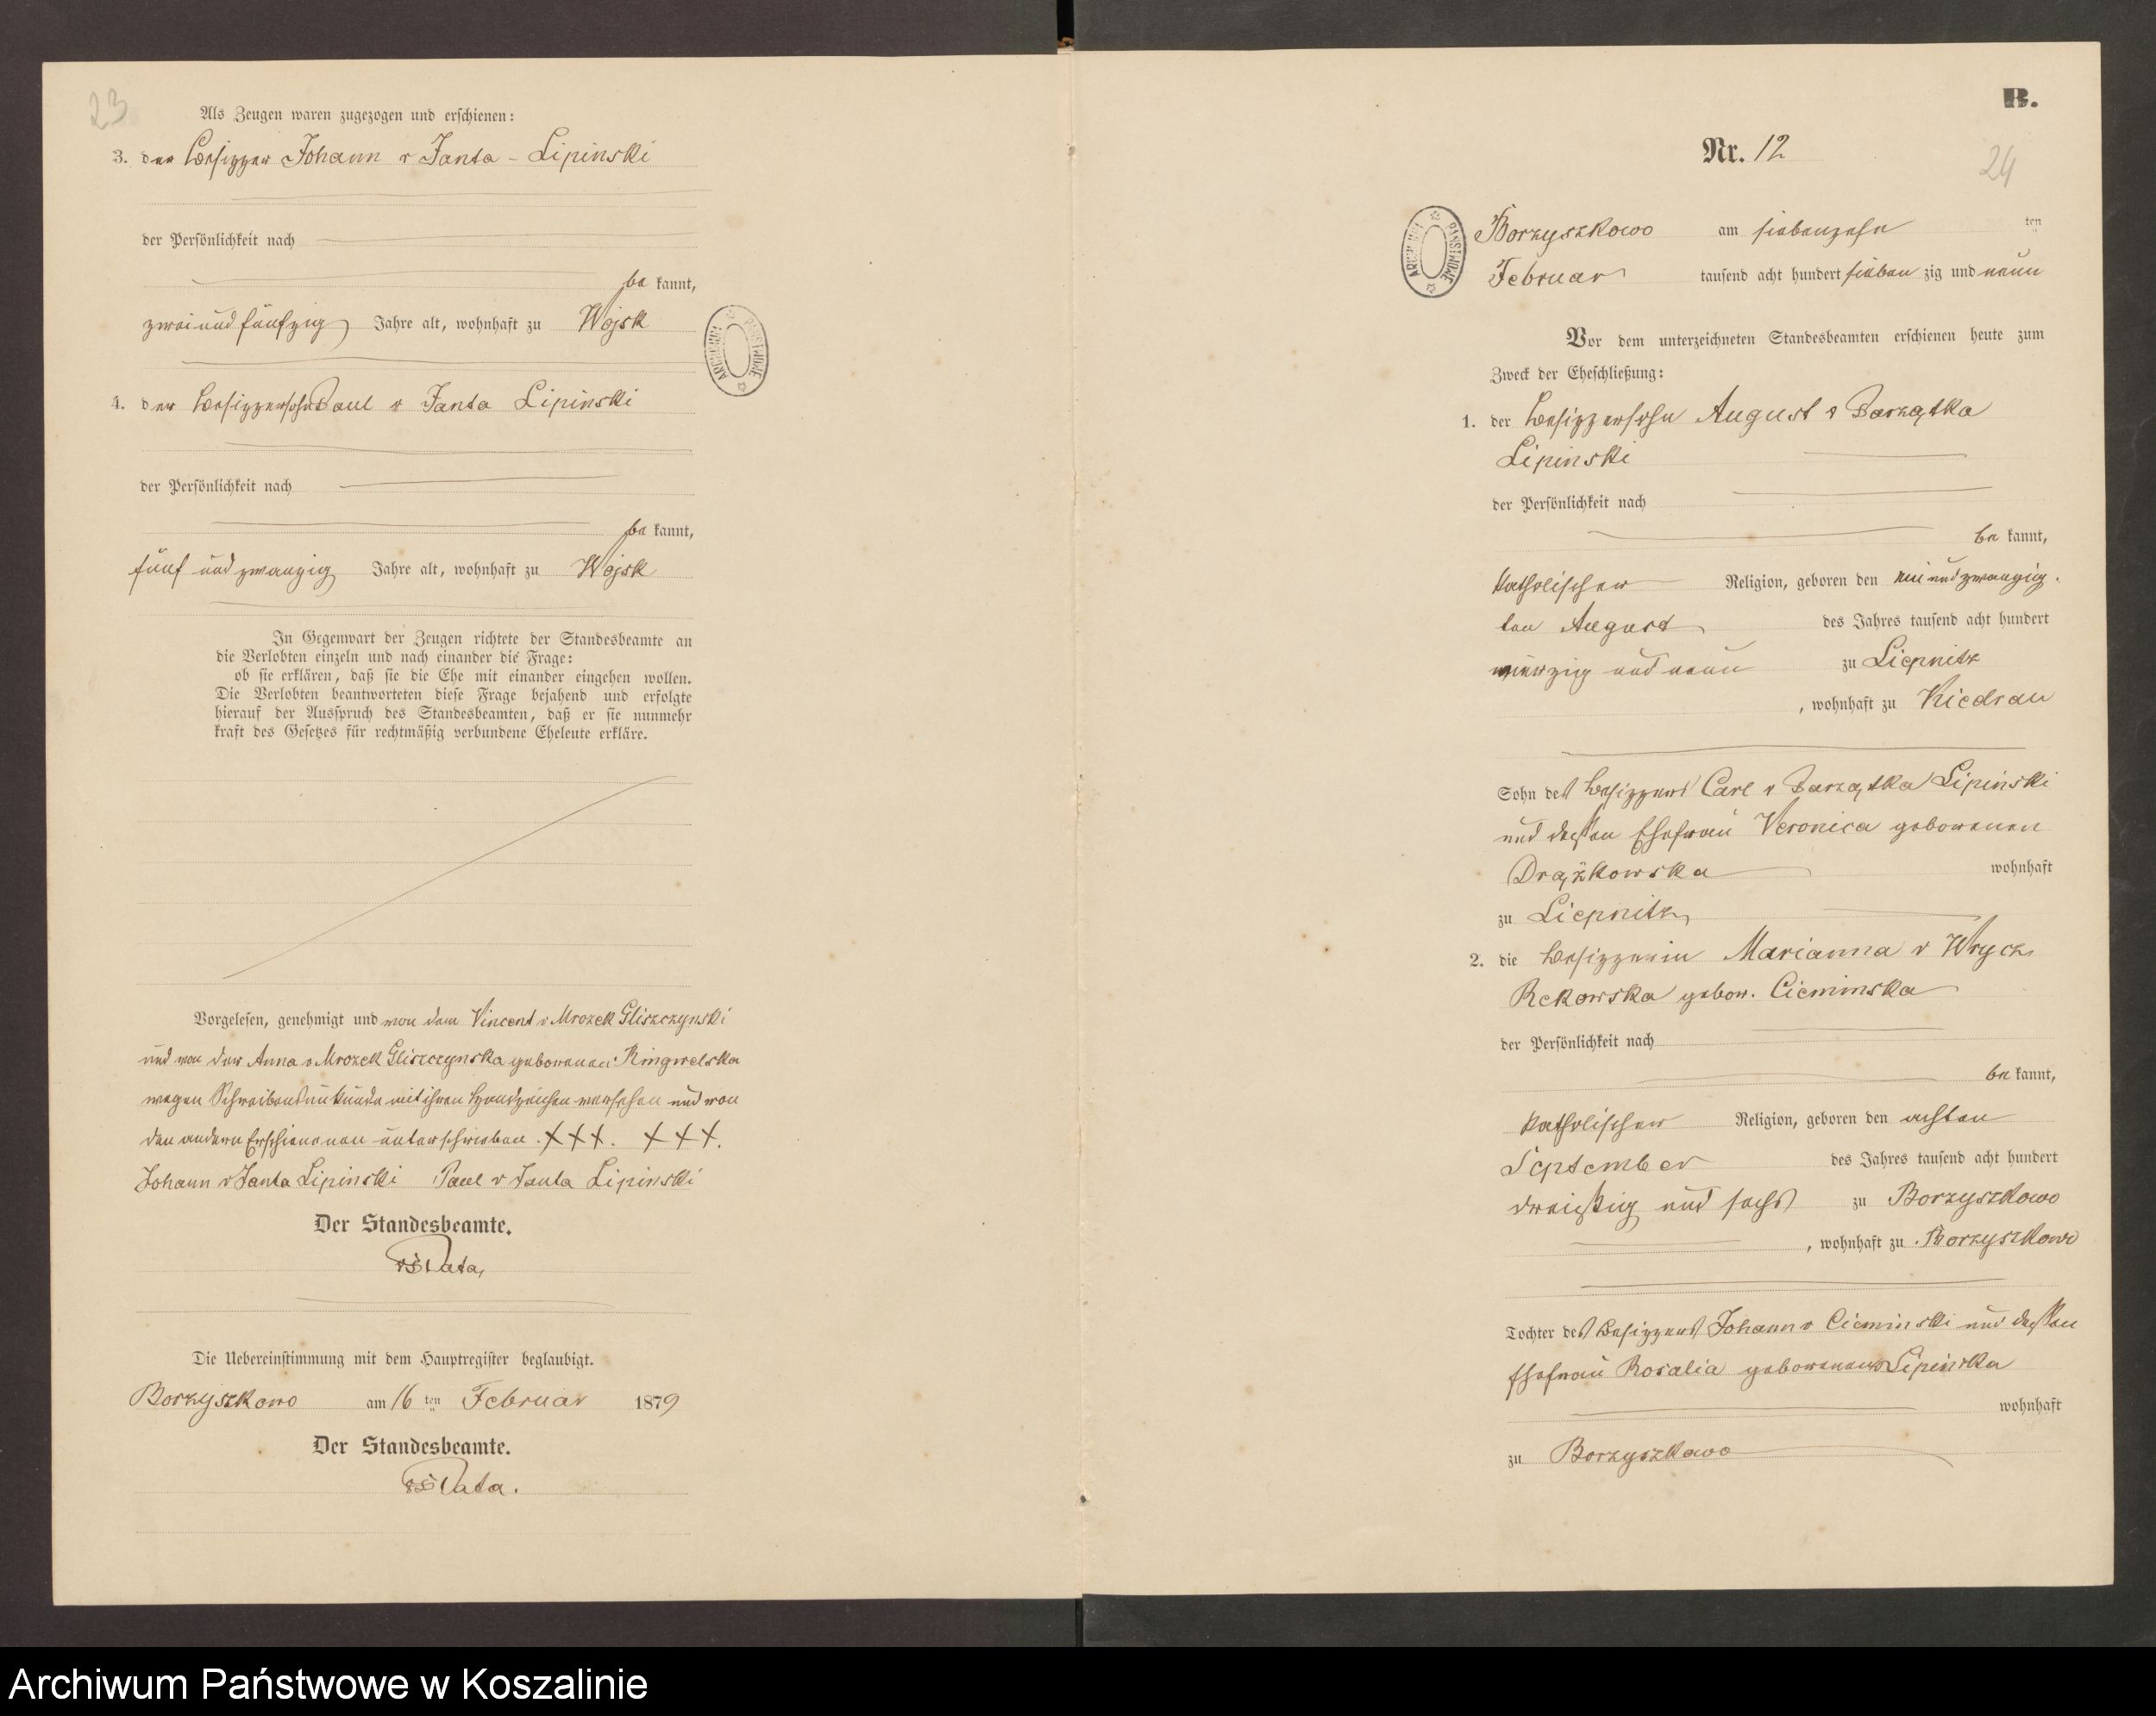 23
Als Zeugen waren zugezogen und erschienen:
3. der Besitzer Johann v Janta - Lipinski
der Persönlichkeit nach
be kannt,
zwei und fünfzig Jahre alt, wohnhaft zu Wojsk
4. der Besitzersohn Paul v Janta Lipinski
der Persönlichkeit nach
be kannt,
fünf und zwanzig Jahre alt, wohnhaft zu Wojsk
In Gegenwart der Zeugen richtete der Standesbeamte an
die Verlobten einzeln und nach einander die Frage:
ob sie erklären, daß sie die Ehe mit einander eingehen wollen.
Die Verlobten beantworteten diese Frage bejahend und erfolgte
hierauf der Ausspruch des Standesbeamten, daß er sie nunmehr
kraft des Gesetzes für rechtmäßig verbundene Eheleute erkläre.
Vorgelesen, genehmigt und von dem Vincent v Mrozek Gliszczynski
und von der Anna v Mrozek Gliszczynska geborenen Ringwelska
wegen Schreibensunkunde mit ihren Handzeichen versehen und von
den andern Erschienenen unterschrieben. +++. +++.
Johann v Janta Lipinski Paul v Janta Lipinski
Der Standesbeamte.
Die Uebereinstimmung mit dem Hauptregister beglaubigt.
Borzyszkowo am 16 ten Februar 1879
Der Standesbeamte.
B.
Nr. 12
24
Borzyszkowo am siebenzehn ten
Februar tausend acht hundert sieben zig und neun
Vor dem unterzeichneten Standesbeamten erschienen heute zum
Zweck der Eheschließung:
1. der Besitzersohn August v Parzątka
Lipinski
der Persönlichkeit nach
be kannt,
katholischer Religion, geboren den ein und zwanzig.
ten August des Jahres tausend acht hundert
vierzig und neun zu Liepnitz
, wohnhaft zu Kiedrau
Sohn des Besitzers Carl v Parzątka Lipinski
und dessen Ehefrau Veronica geborenen
Drążkowska wohnhaft
zu Liepnitz
2. die Besitzerin Marianna v Wrycz
Rekowska gebor. Cieminska
der Persönlichkeit nach
be kannt,
katholischer Religion, geboren den achten
September des Jahres tausend acht hundert
dreißig und sechs zu Borzyszkowo
, wohnhaft zu Borzyszkowo
Tochter des Besitzers Johann v Cieminski und dessen
Ehefrau Rosalia geborenen Lipinska
wohnhaft
zu Borzyszkowo
ARCHIWUM PAŃSTWOWE
ARCHIWUM PAŃSTWOWE
Archiwum Państwowe w Koszalinie